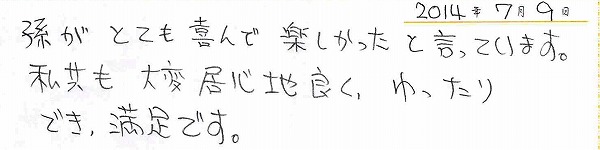 2014年 7月 9日
孫が とても 喜んで 楽しかった と 言っています。
私共も 大変 居心地良く、ゆったり
でき、満足です。